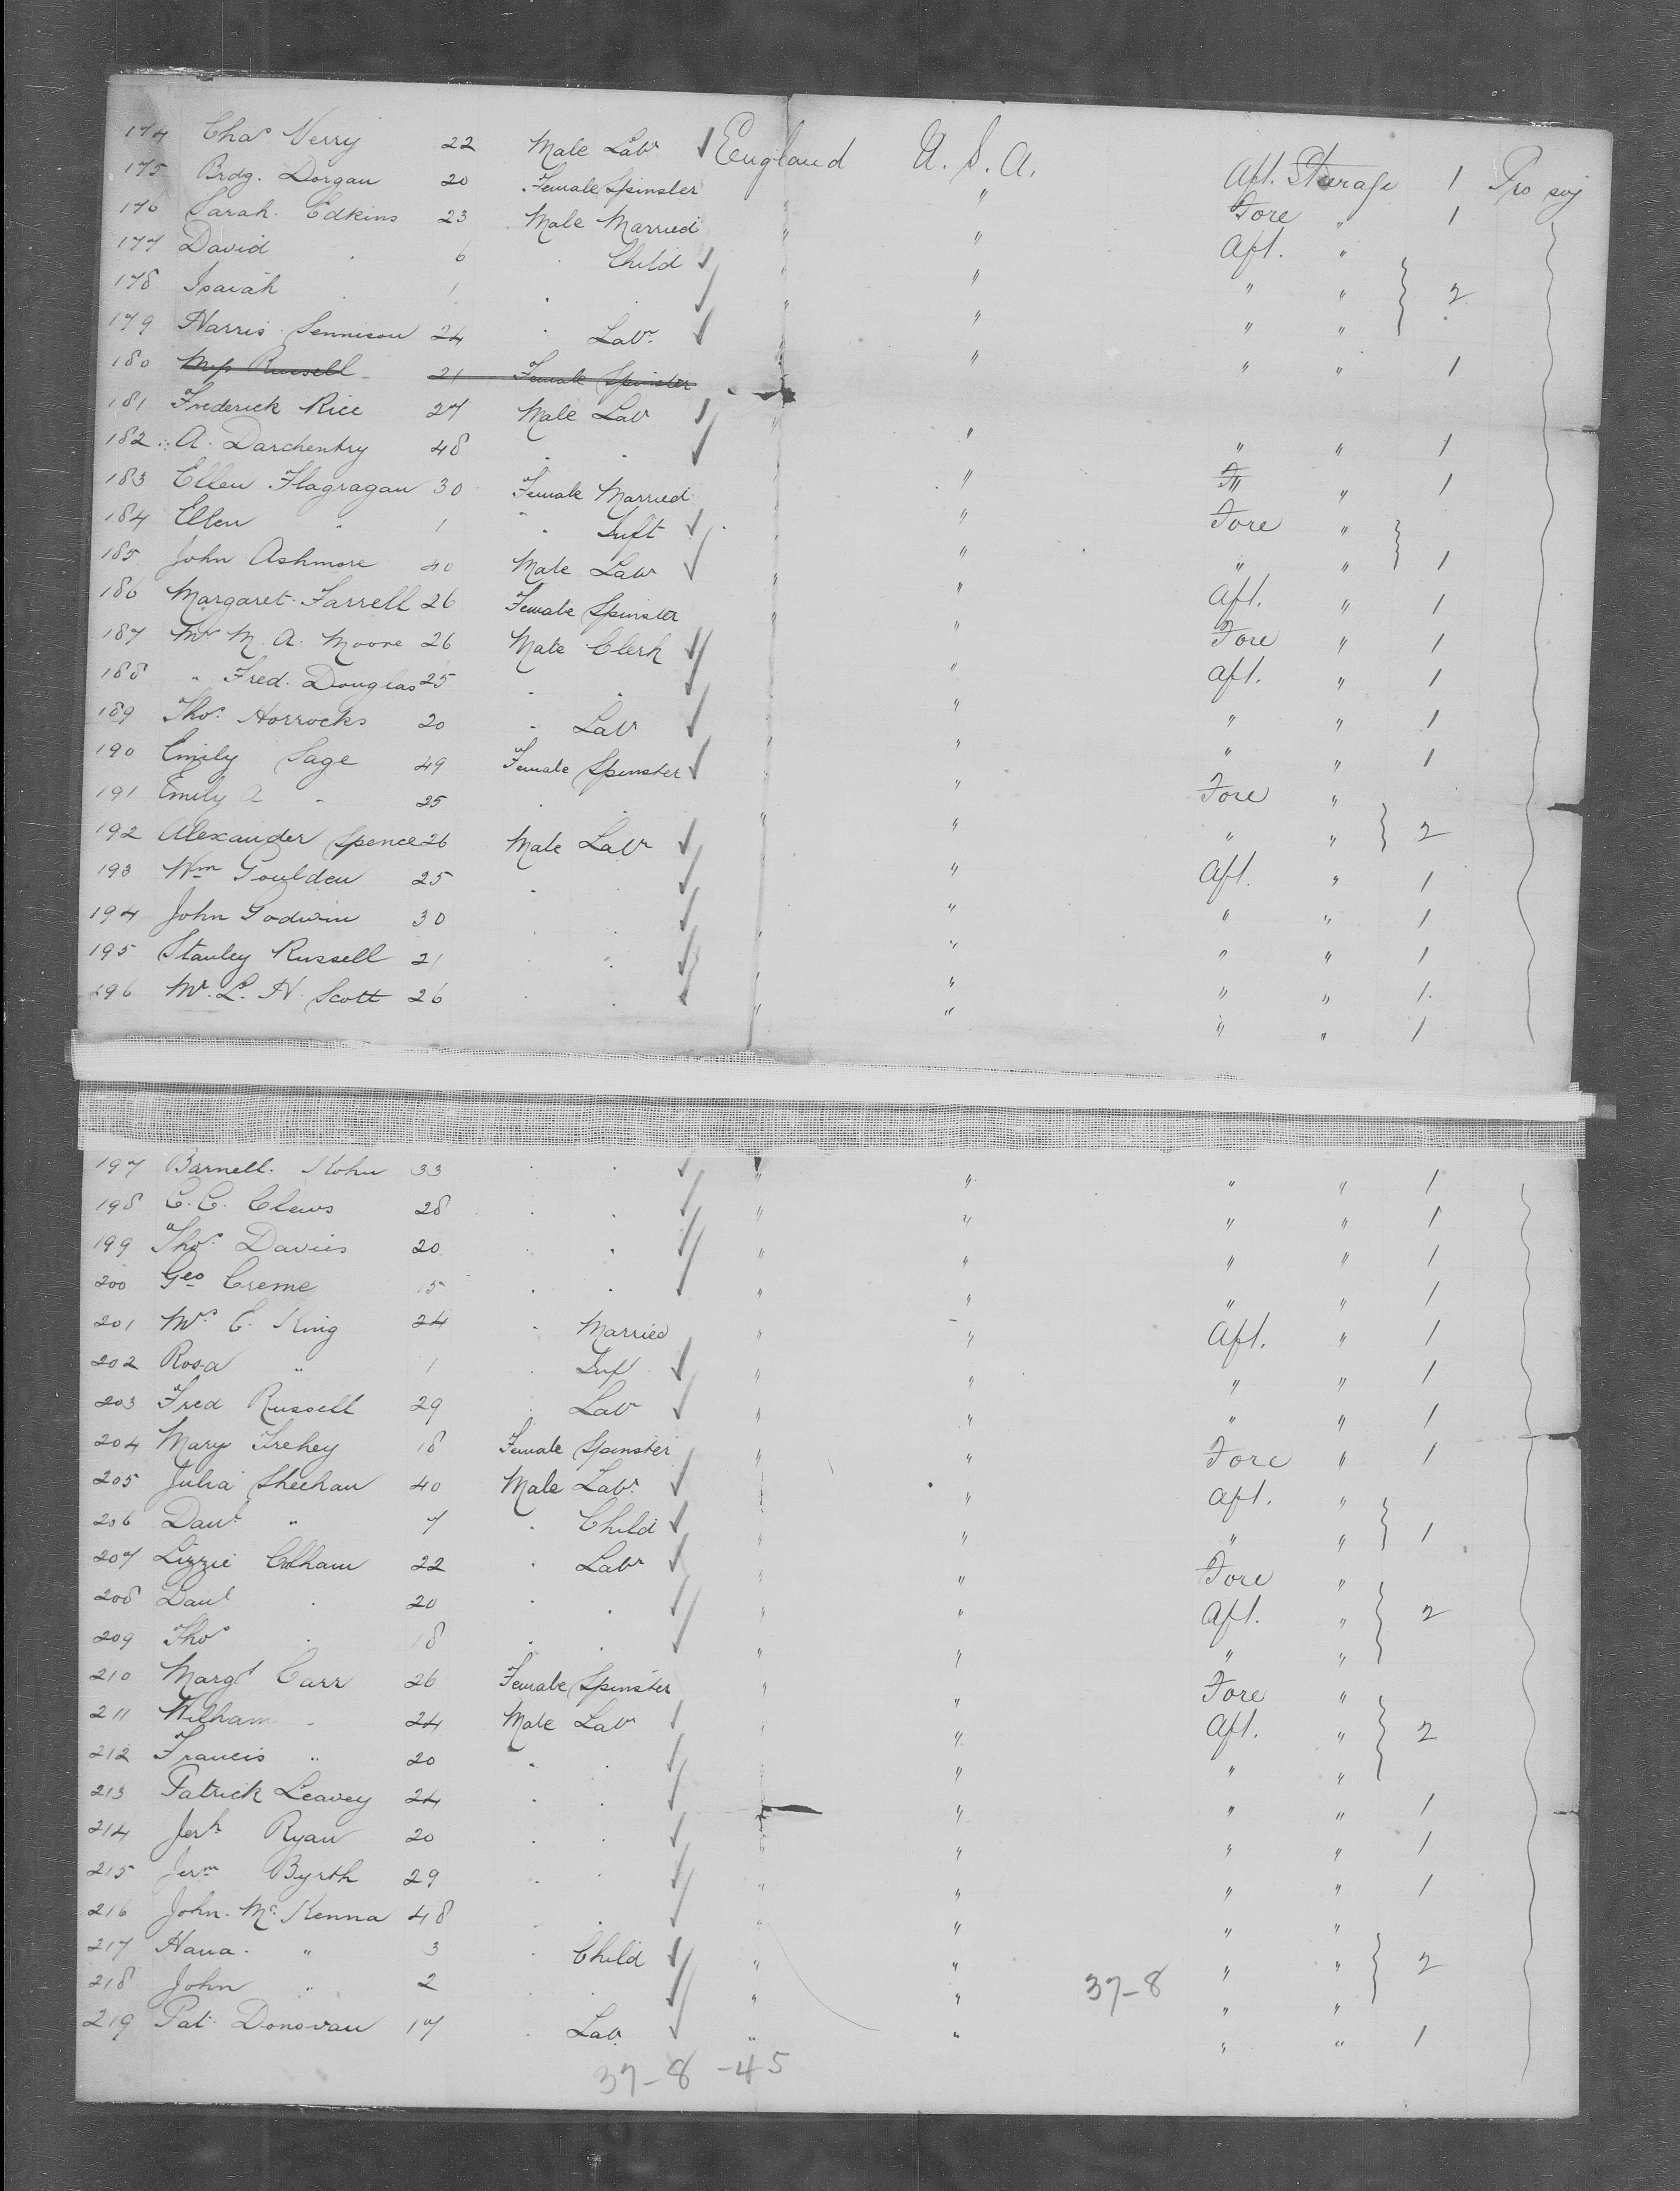 174 Chas Verry 22 Male Labr England U.S.A. Aft. Steerage 1 Pro soj
175 Brdg. Dorgan 20 Female Spinster " Fore " 1
176 Sarah Edkins 23 Male Married " " Aft. "
177 David . 6 . Child " " " "
178 Isaiah . 1 . " " " " 2
179 Harris Sennison 24 . Labr. " " " " 1
180 Miss Russell 21 Female Spinster
181 Frederick Rice 27 Male Labr " " " " 1
182 A. Darchentry 48 . . " " " 1
183 Ellen Flagragan 30 Female Married " Fore "
184 Ellen " 1 " Inft " " " 1
185 John Ashmore 40 Male Labr " " Aft. " 1
186 Margaret Farrell 26 Female Spinster " " Fore " 1
187 Mr M. A. Moore 26 Male Clerk " Aft. " 1
188 " Fred. Douglas 25 . . " " " 1
189 Thos. Horrocks 20 . Labr " " " " 1
190 Emily Sage 49 Female Spinster " " Fore "
191 Emily A " 25 . . " " " " 2
192 Alexander Spence 26 Male Labr " Aft. " 1
193 Wm Goulden 25 . . " " " 1
194 John Godwin 30 . . " " " " 1
195 Stanley Russell 21 . . " " " " 1
196 Mr. L. H. Scott 26 . . " " " " 1
197 Barnell. Kohn 33 . . " " " " 1
198 C. C. Clews 28 . . " " " " 1
199 Thos. Davies 20 . . " " " " 1
200 Geo Creme 15 . . " " " " 1
201 Mrs. E. King 24 . Married " " Aft. " 1
202 Rosa " 1 . Inft " " " " 1
203 Fred Russell 29 . Labr " " " " 1
204 Mary Trehey 18 Female Spinster " " Fore " 1
205 Julia Sheehan 40 Male Labr. " " Aft. "
206 Danl " 7 . Child " " " " 1
207 Lizzie Colham 22 . Labr " " Fore "
208 Danl . 20 . . " " Aft. " 2
209 Thos . 18 . . " " " "
210 Margt Carr 26 Female Spinster " " Fore "
211 William . 24 Male Labr " " Aft. " 2
212 Francis " 20 . . " " "
213 Patrick Leavey 24 . . " " " 1
214 Jerh Ryan 20 . . " " " 1
215 Jerm Byrth 29 . . " " " " 1
216 John. Mc. Kenna 48 . . " " " "
217 Hana. " 3 . Child " " " " 2
218 John " 2 . . " " 37-8 " "
219 Pat. Donovan 17 . Lab. " " " " 1
37-8-45